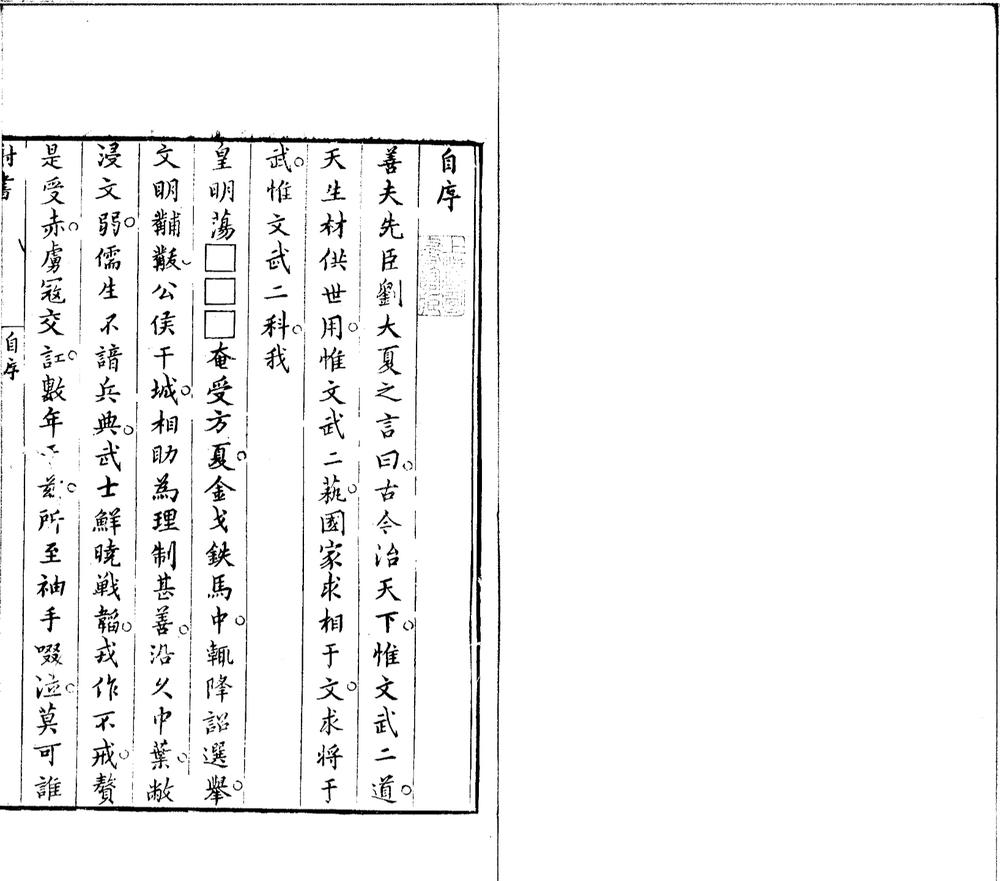 自序
善夫先臣劉大夏之言曰。古今治天下。惟文武二道。
天生材供世用。惟文武二藝。國家求相于文。求將于
武。惟文武二科。我
皇明蕩□□□奄受方夏。金戈鉄馬中。輒降詔選舉。
文明黼黻、公侯干城。相助為理制甚善。沿久中葉。敝
浸文弱。儒生不諳兵典。武士鮮曉戦韜。戎作不戒。贅
是受赤。虜寇交訌。數年于玆。所至袖手啜泣。莫可誰
自序